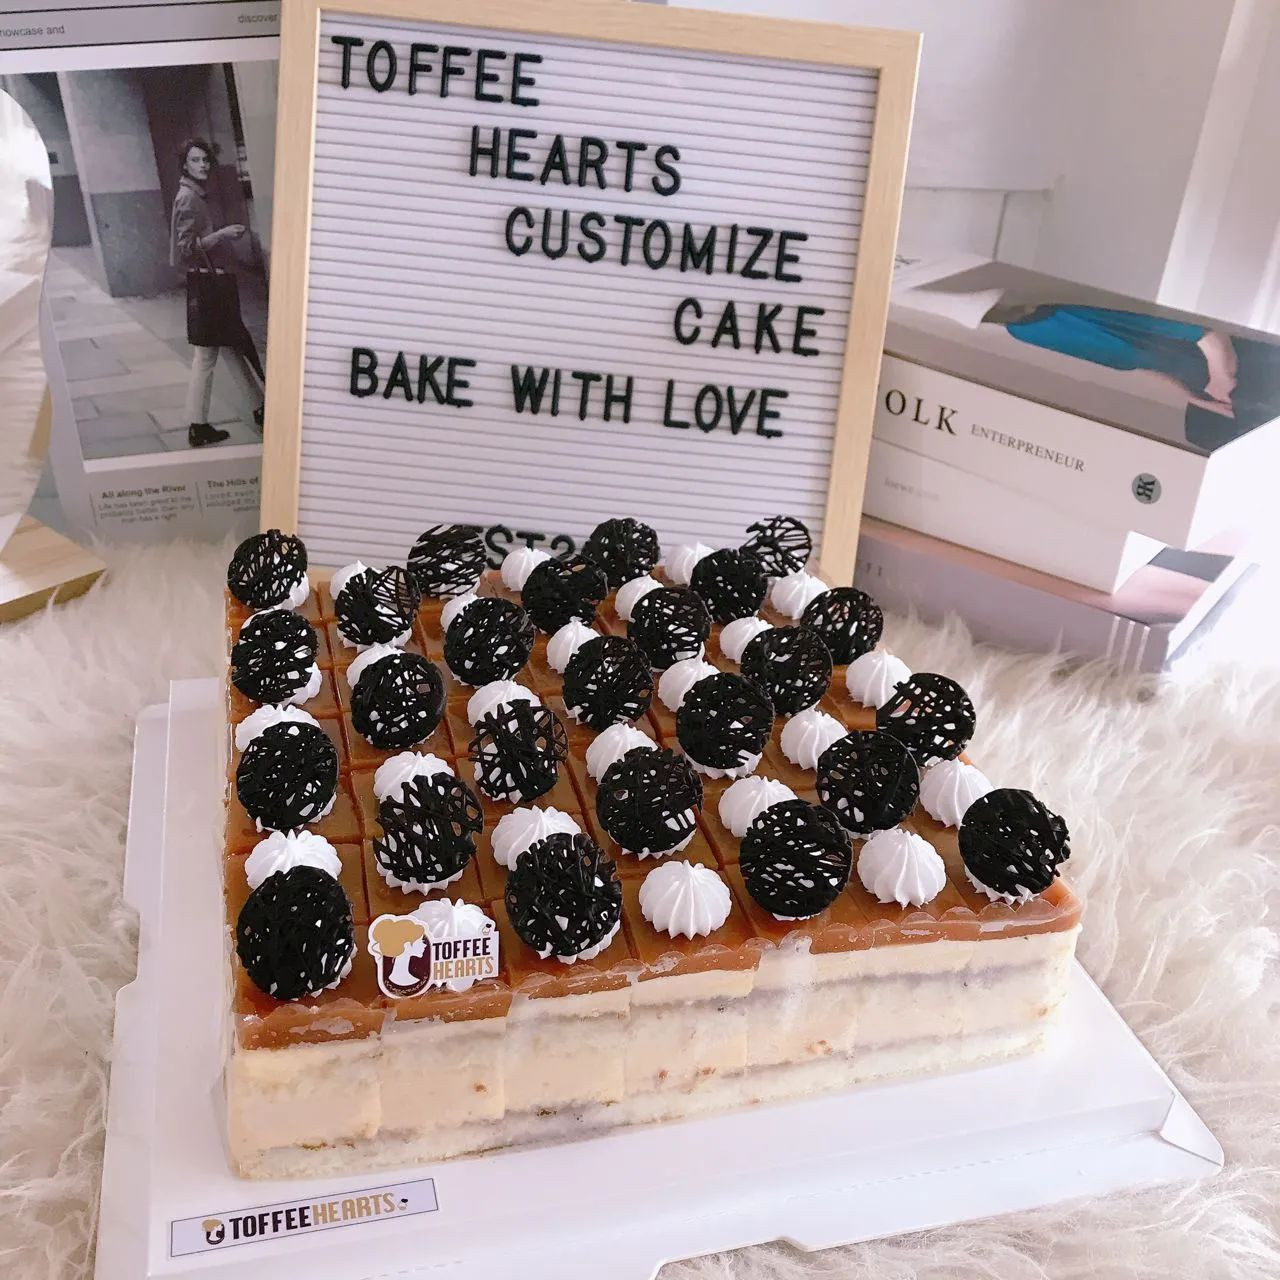 howcase and
discover
TOFFEE
HEARTS
CUSTOMIZE
CAKE
BAKE WITH LOVE
All along the River
The Hills of
OLK ENTERPRENEUR
TOFFEE
HEARTS
TOFFEEHEARTS